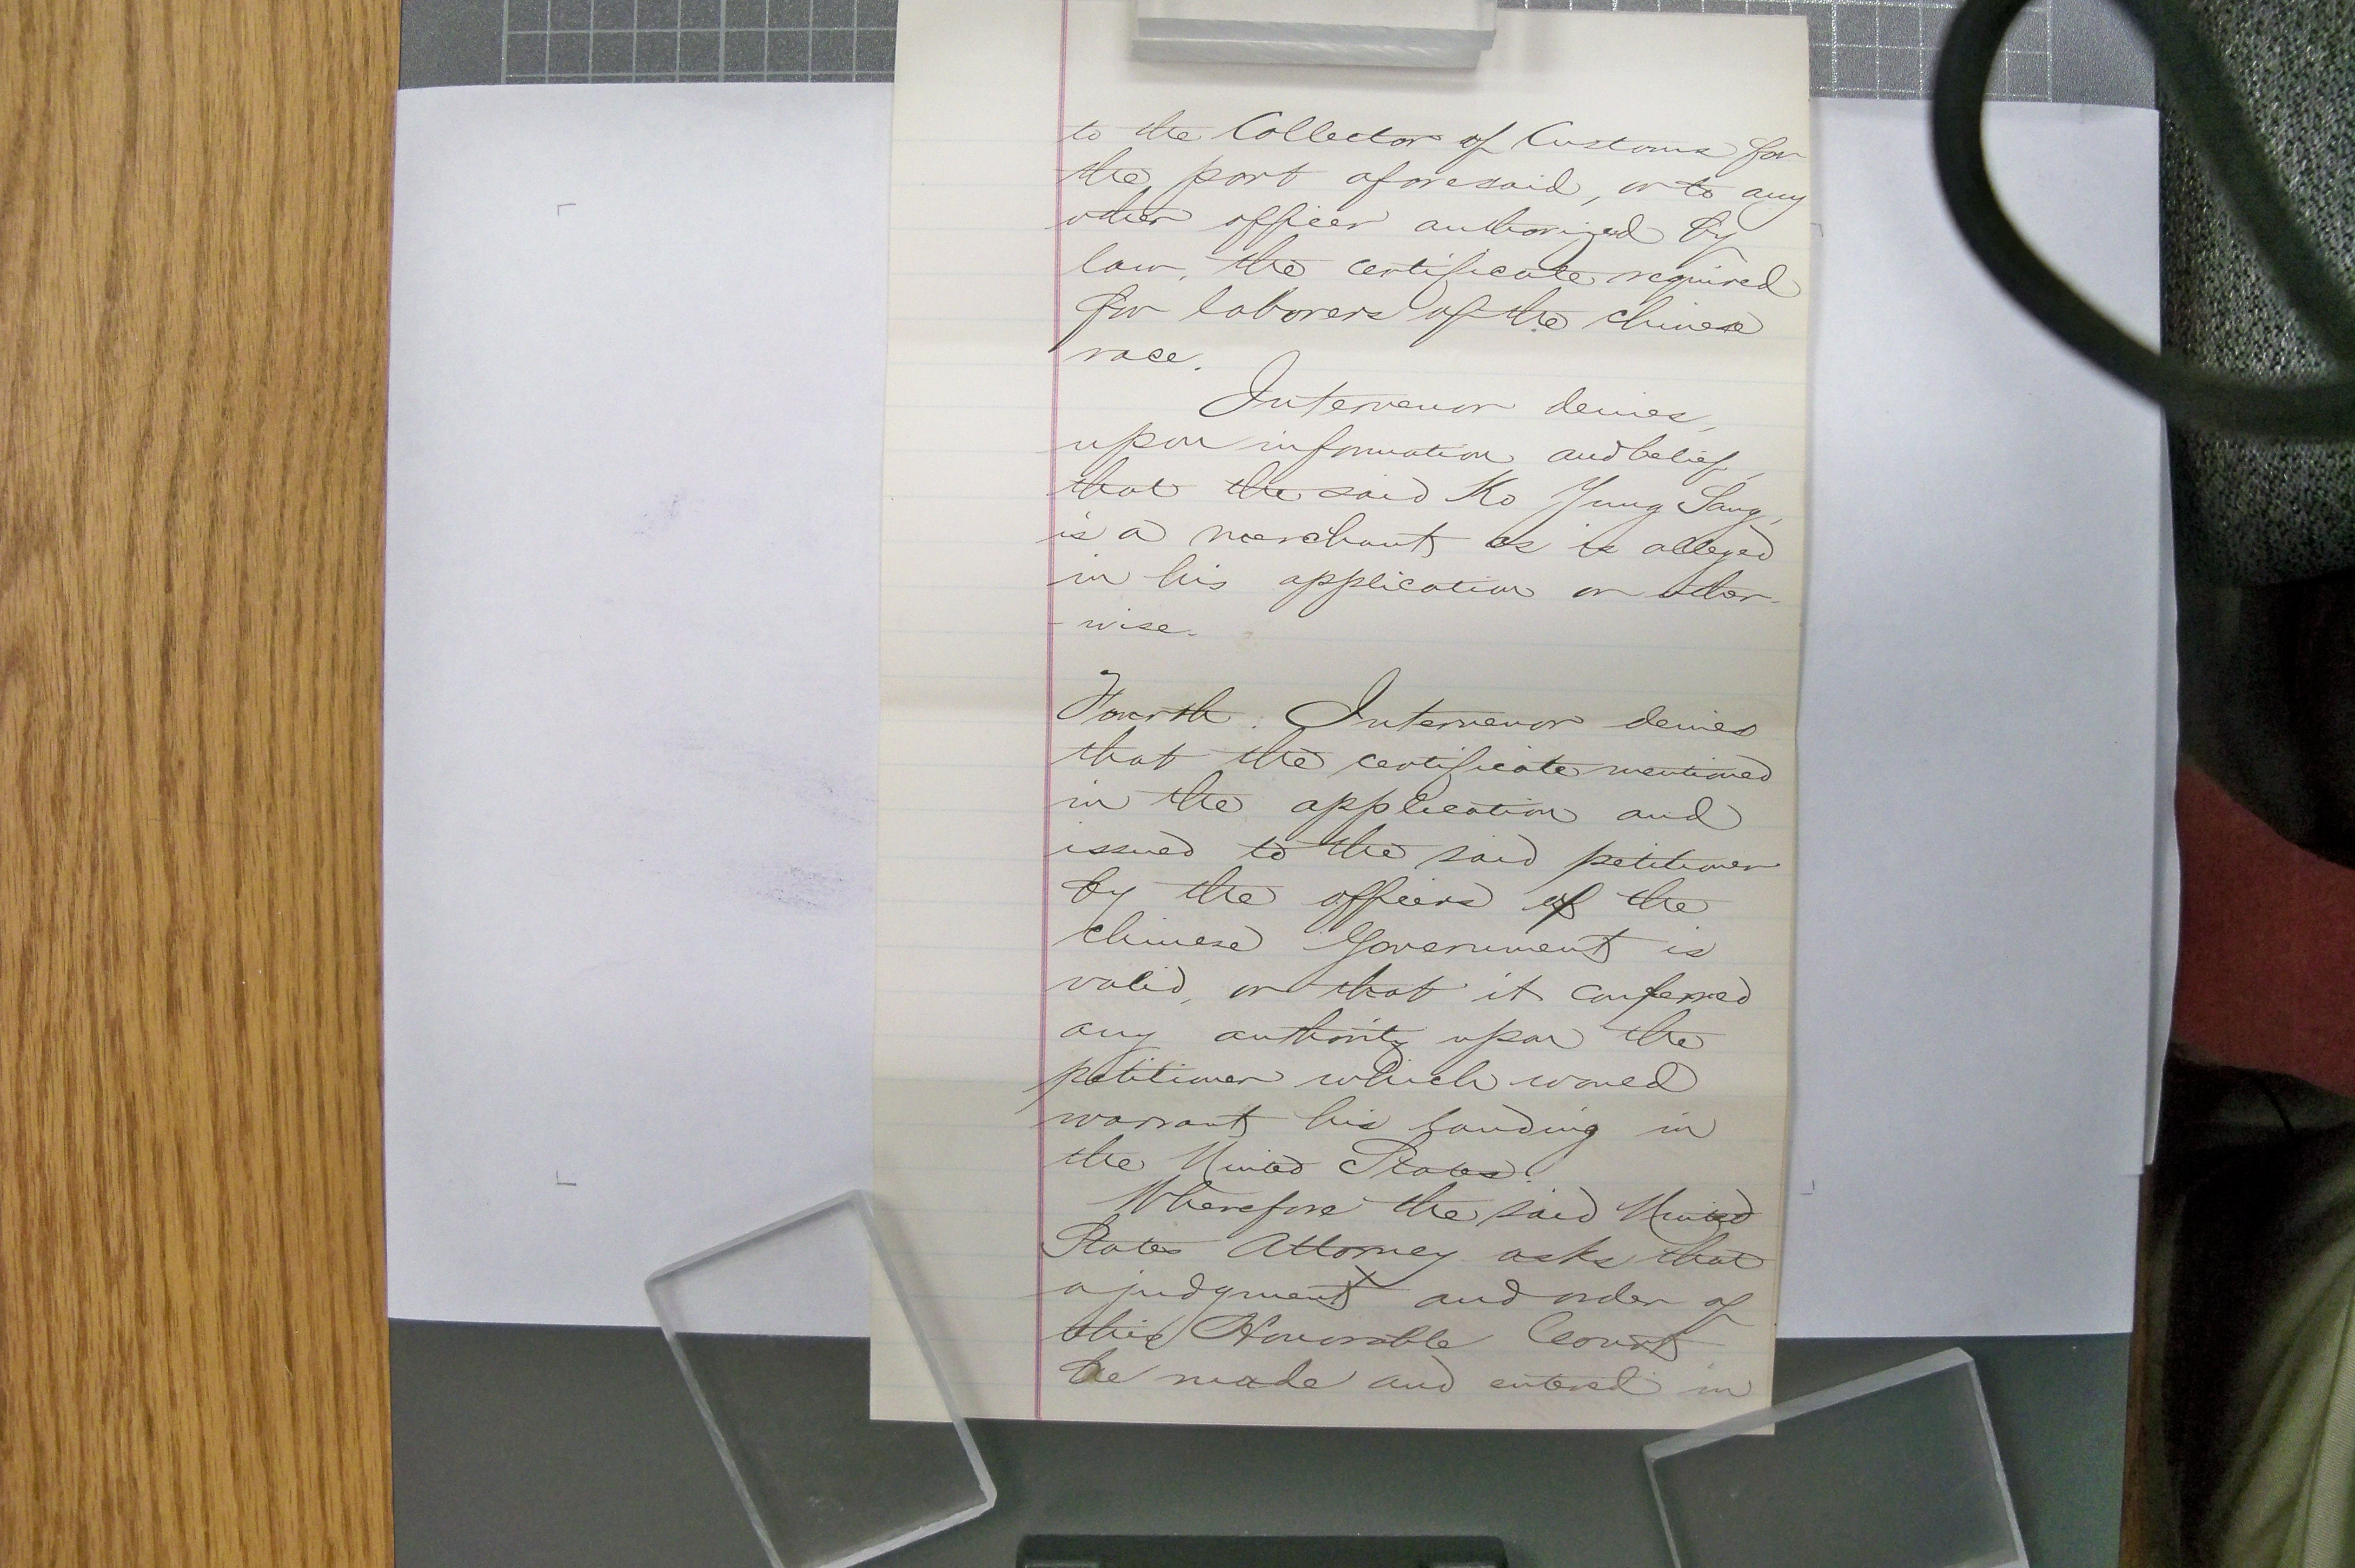 to the Collector of Customs for
the port aforesaid, or to any
other officer authorized by
law, the certificate required
for laborers of the chinese
race.
Intervenor denies,
upon information and belief,
that the said Ko Yung Sang,
is a merchant as is alleged
in his application or other-
wise.
Fourth. Intervenor denies
that the certificate mentioned
in the application and
issued to the said petitioner
by the officers of the
chinese Government is
valid, or that it conferred
any authority upon the
petitioner which would
warrant his landing in
the United States.
Wherefore the said United
States Attorney asks that
a judgment and order of
this Honorable Court
be made and entered in